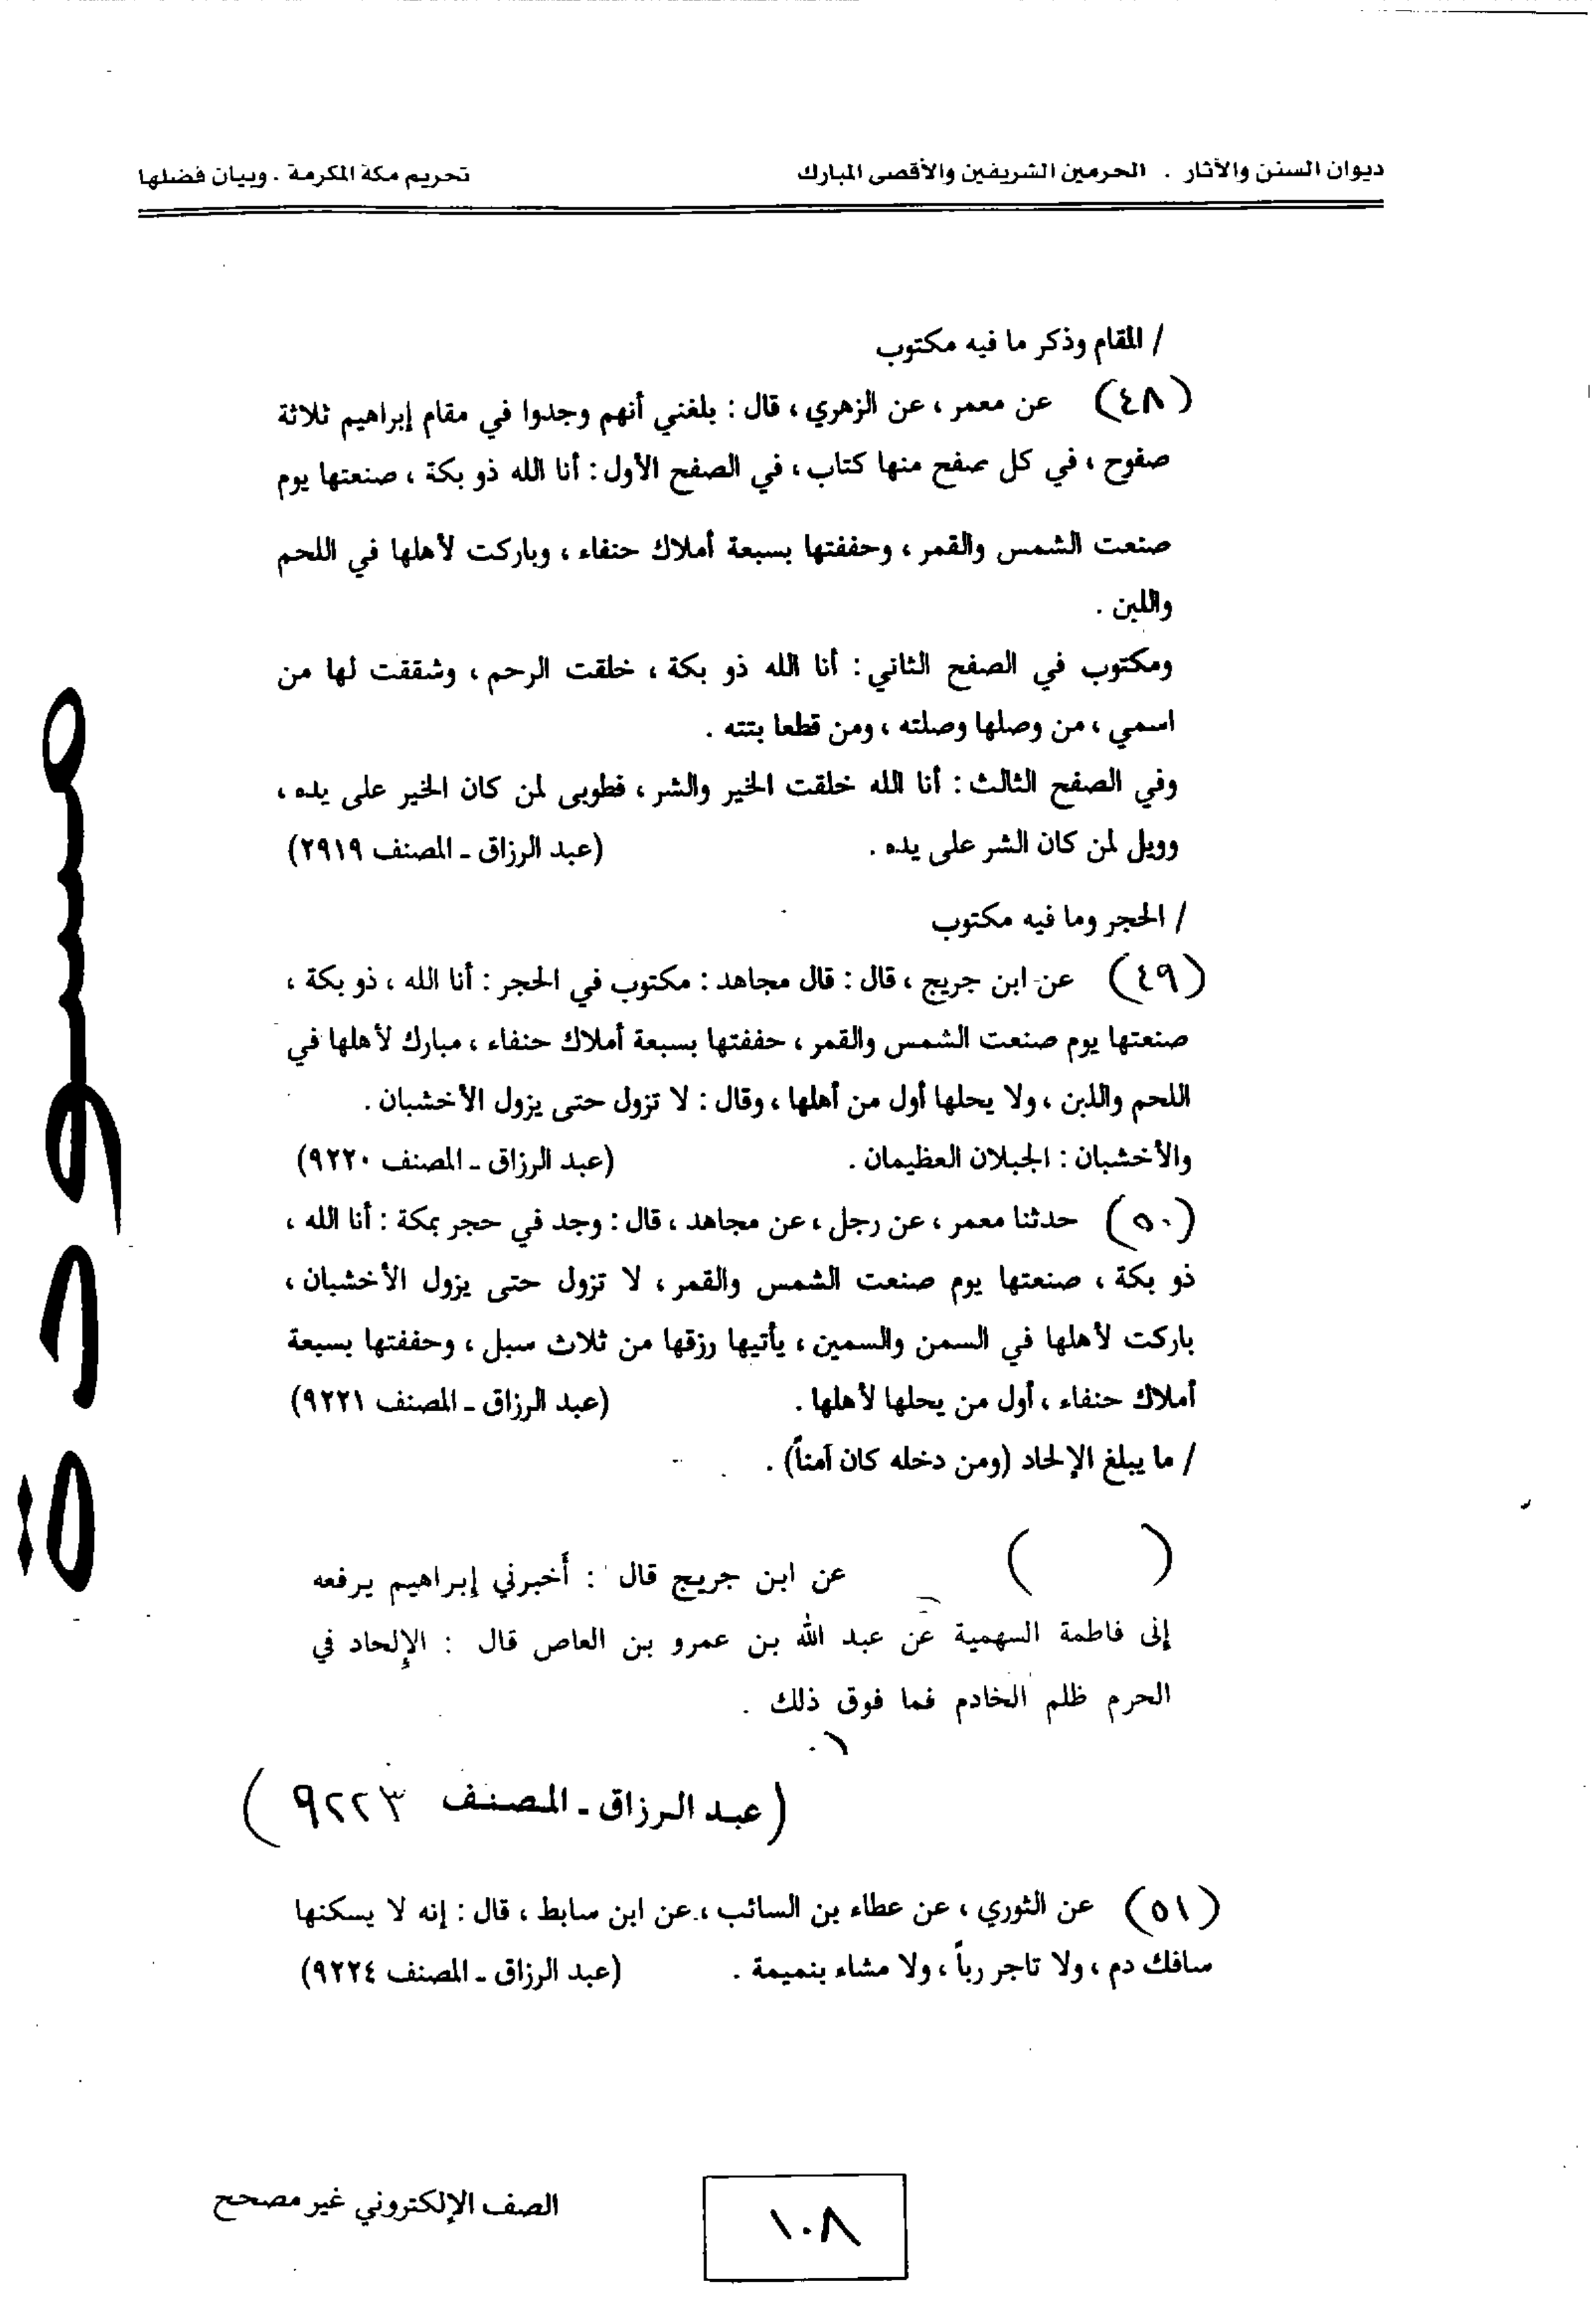 ديوان السنن والآثار . الحرمين الشريفين والأقصى المبارك تحريم مكة المكرمة . وبيان فضلها
/ المقام وذكر ما فيه مكتوب
(٤٨) عن معمر ، عن الزهري ، قال : بلغني أنهم وجدوا في مقام إبراهيم ثلاثة
صفوح ، في كل صفح منها كتاب ، في الصفح الأول : أنا الله ذو بكة ، صنعتها يوم
صنعت الشمس والقمر ، وحففتها بسبعة أملاك حنفاء ، وباركت لأهلها في اللحم
واللبن .
ومكتوب في الصفح الثاني : أنا الله ذو بكة ، خلقت الرحم ، وشققت لها من
اسمي ، من وصلها وصلته ، ومن قطعا بتته .
وفي الصفح الثالث : أنا الله خلقت الخير والشر ، فطوبى لمن كان الخير على يده ،
وويل لمن كان الشر على يده . (عبد الرزاق ـ المصنف ٢٩١٩)
/ الحجر وما فيه مكتوب
(٤٩) عن ابن جريج ، قال : قال مجاهد : مكتوب في الحجر : أنا الله ، ذو بكة ،
صنعتها يوم صنعت الشمس والقمر ، حففتها بسبعة أملاك حنفاء ، مبارك لأهلها في
اللحم واللبن ، ولا يحلها أول من أهلها ، وقال : لا تزول حتى يزول الأخشبان .
والأخشبان : الجبلان العظيمان . (عبد الرزاق ـ المصنف ٩٢٢٠)
(٥٠) حدثنا معمر ، عن رجل ، عن مجاهد ، قال : وجد في حجر بمكة : أنا الله ،
ذو بكة ، صنعتها يوم صنعت الشمس والقمر ، لا تزول حتى يزول الأخشبان ،
باركت لأهلها في السمن والسمين ، يأتيها رزقها من ثلاث سبل ، وحففتها بسبعة
أملاك حنفاء ، أول من يحلها لأهلها . (عبد الرزاق ـ المصنف ٩٢٢١)
/ ما يبلغ الإلحاد (ومن دخله كان آمناً) .
( ) عن ابن جريج قال : أخبرني إبراهيم يرفعه
إلى فاطمة السهمية عن عبد الله بن عمرو بن العاص قال : الإلحاد في
الحرم ظلم الخادم فما فوق ذلك .
(عبد الرزاق ـ المصنف ٩٢٢٣)
(٥١) عن الثوري ، عن عطاء بن السائب ، عن ابن سابط ، قال : إنه لا يسكنها
سافك دم ، ولا تاجر رباً ، ولا مشاء بنميمة . (عبد الرزاق ـ المصنف ٩٢٢٤)
مسودة
١٠٨
الصف الإلكتروني غير مصحح